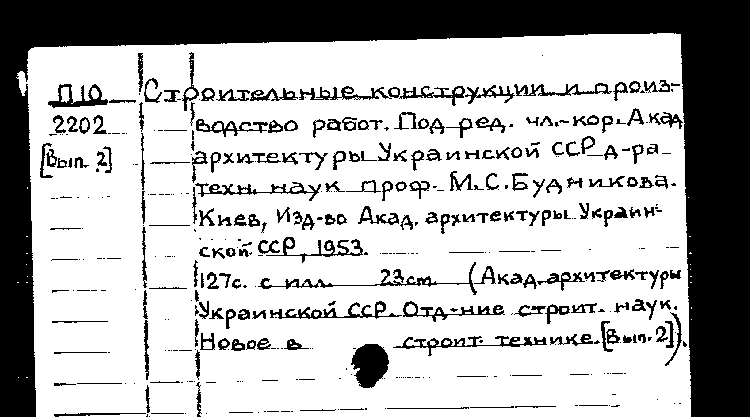 П10 Строительные конструкции и произ-
2202 водство работ. Под ред. чл.-кор. Акад
[Вып. 2] архитектуры Украинской ССР д-ра
техн. наук проф. М.С.Будникова.
Киев, Изд-во Акад. архитектуры Украин-
ской ССР, 1953.
127с. с илл. 23см. (Акад. архитектуры
Украинской ССР. Отд-ние строит. наук.
Новое в строит. технике. [Вып. 2]).